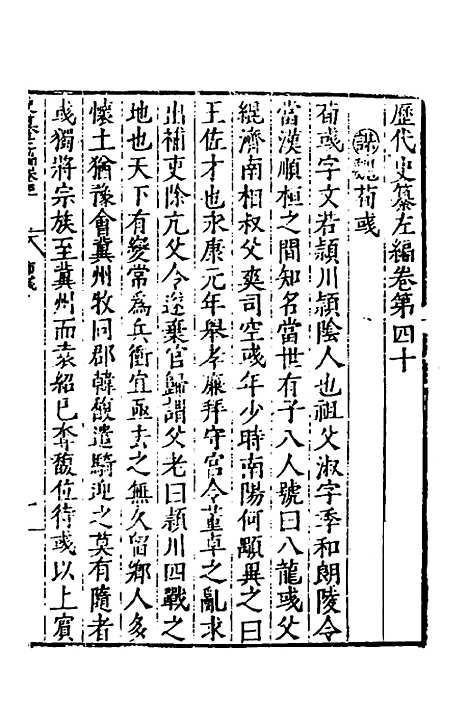 歷代史纂左編卷第四十
謀魏荀彧
荀彧字文若頴川頴陰人也祖父淑字季和朗陵令
當漢順桓之間知名當世有子八人號曰八龍彧父
緄濟南相叔父爽司空彧年少時南陽何顒異之曰
王佐才也永康元年舉孝廉拜守宮令董卓之亂求
出補吏除亢父令遂棄官歸謂父老曰頴川四戰之
地也天下有變常爲兵衝宜亟去之無久留鄉人多
懷土猶豫會冀州牧同郡韓馥遣騎迎之莫有隨者
彧獨將宗族至冀州而袁紹已奪馥位待彧以上賓